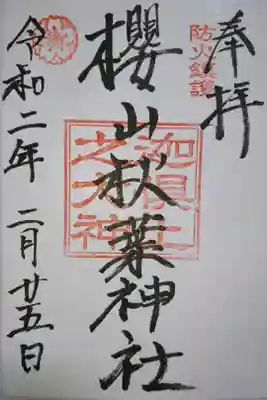 奉拝
防火鎮護
櫻山秋葉神社
迦具土
之大神
令和二年 二月廿五日